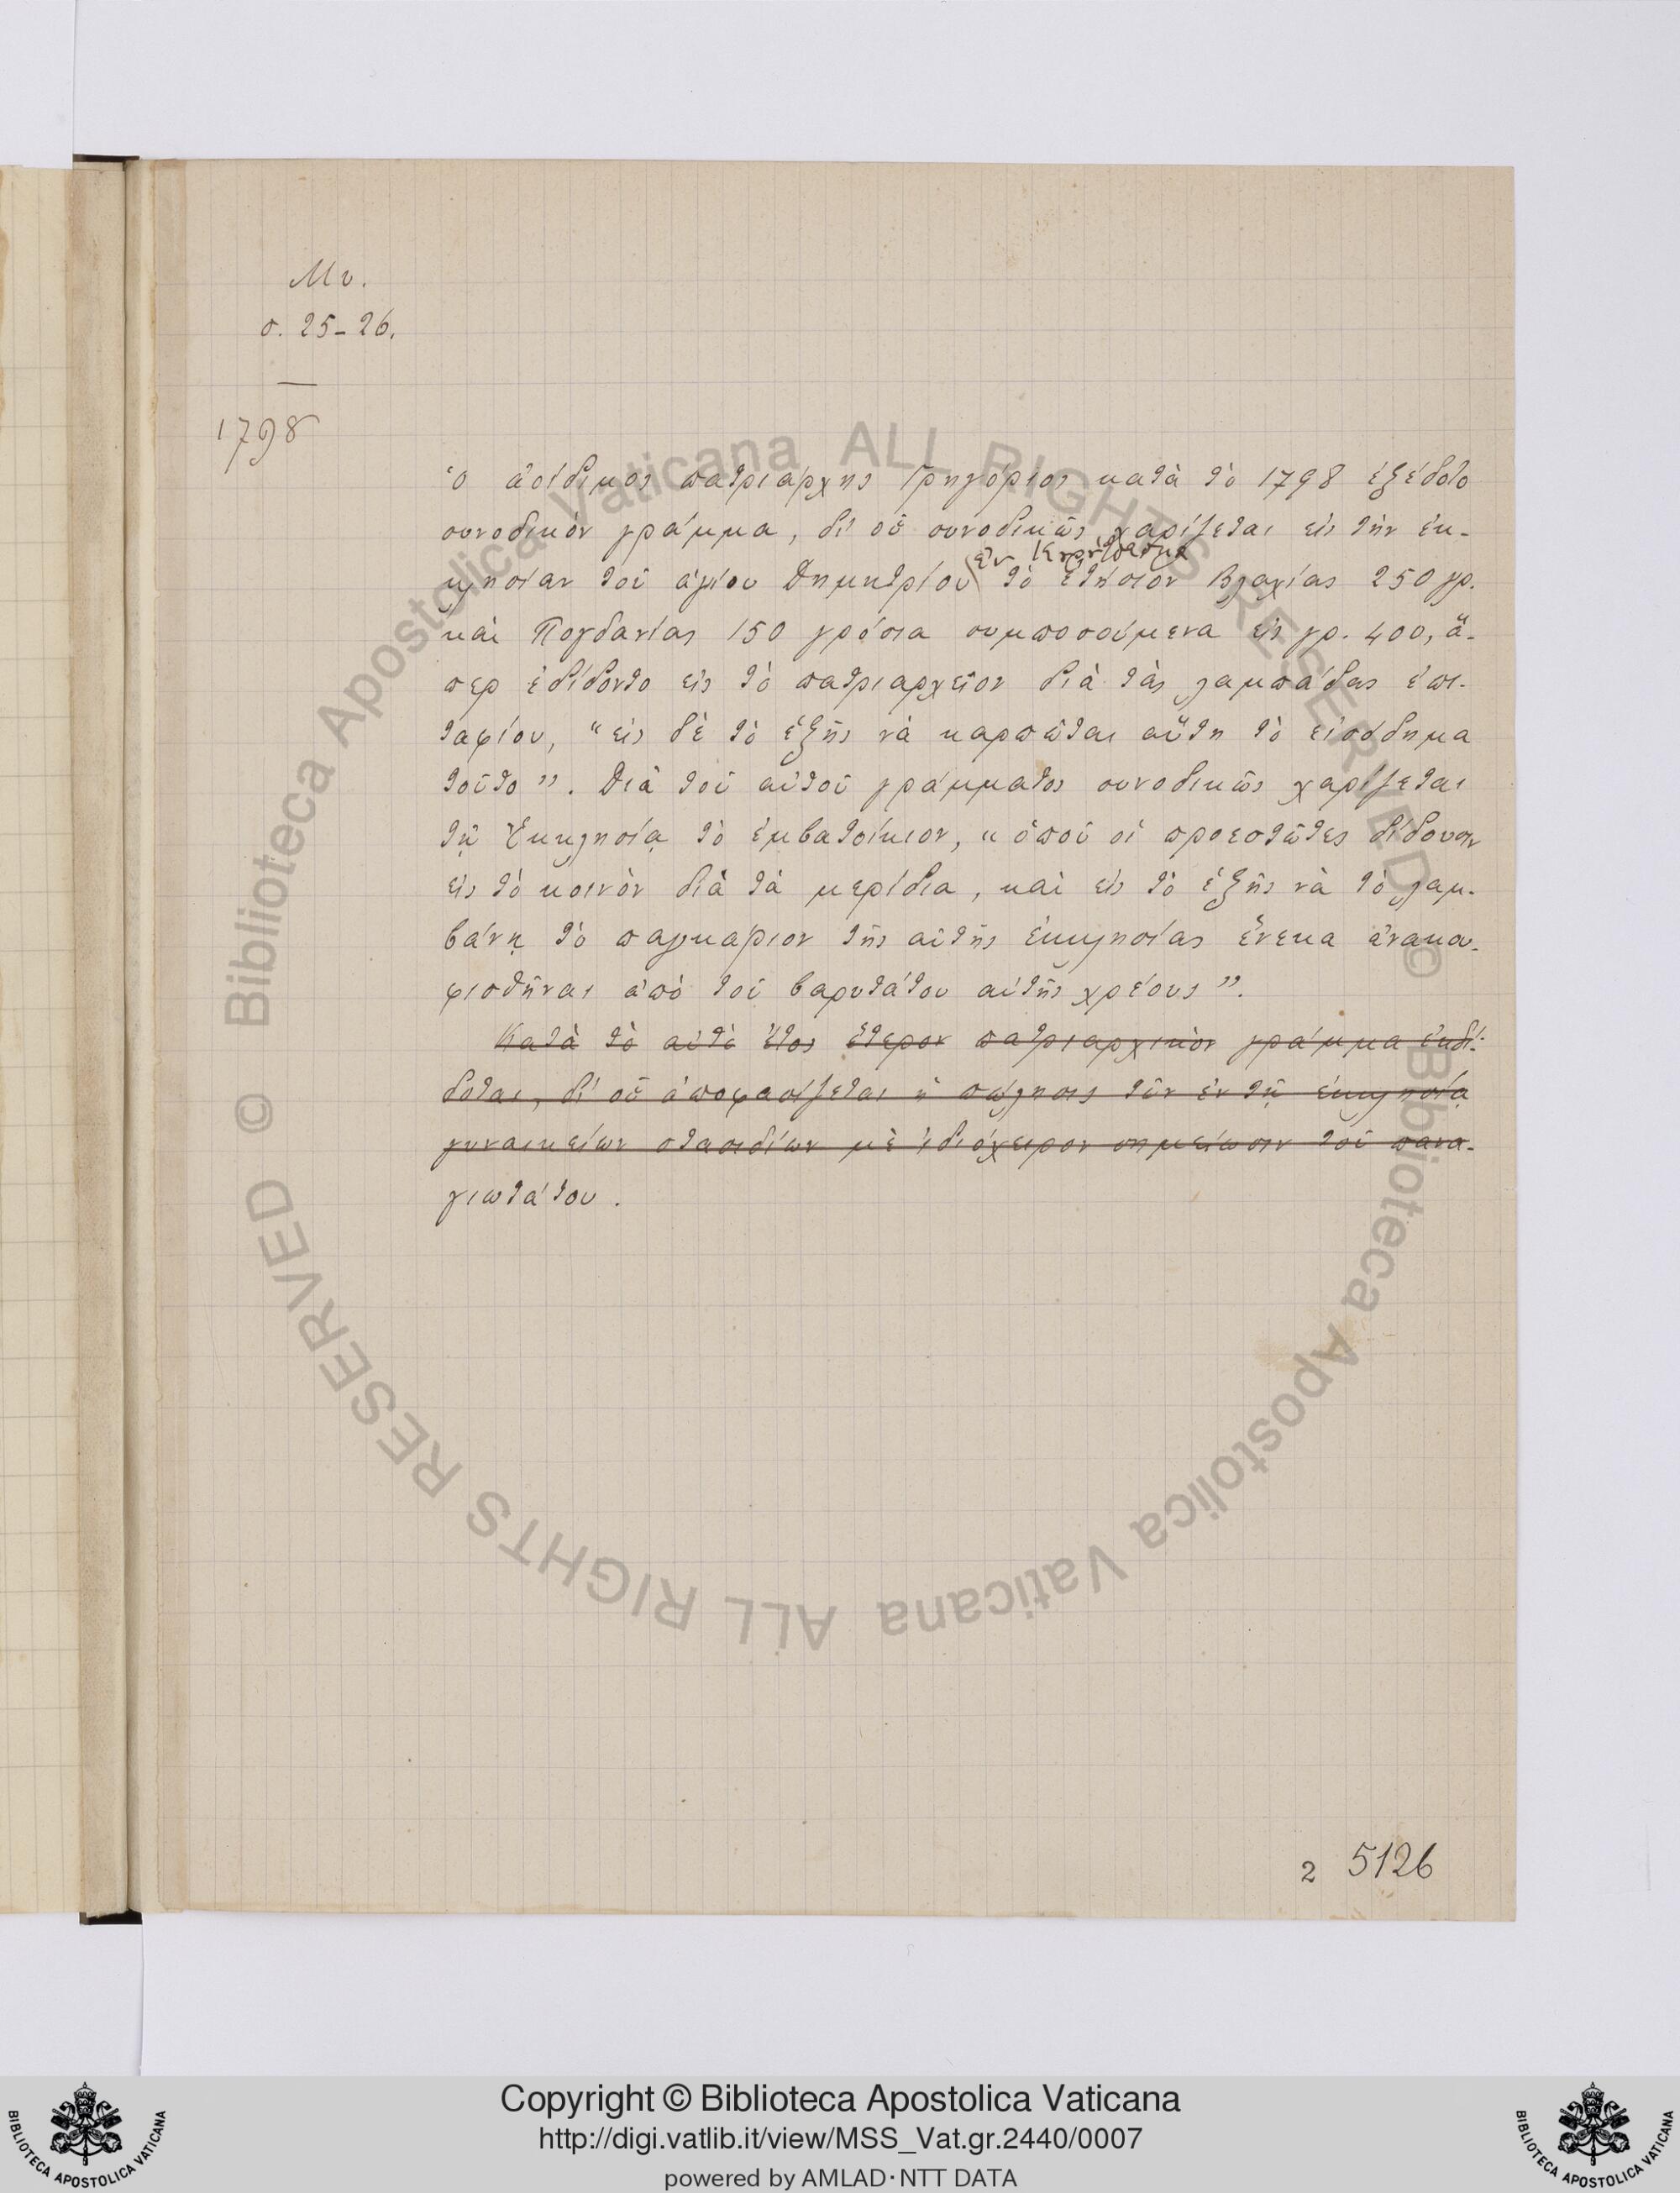 Μν.
σ. 25-26.
1798
Ὁ ἀοίδιμος πατριάρχης Γρηγόριος κατὰ τὸ 1798 ἐξέδοτο
συνοδικὸν γράμμα, δι' οὗ συνοδικῶς χαρίζεται εἰς τὴν ἐκ-
ἐν
κλησίαν τοῦ ἁγίου Δημητρίου τὸ ἐτήσιον Βλαχίας 250 γρ.
καὶ Πογδανίας 150 γρόσια συμποσούμενα εἰς γρ. 400, ἅ-
περ ἐδίδοντο εἰς τὸ πατριαρχεῖον διὰ τὰς λαμπάδας ἐπι-
ταφίου, "εἰς δὲ τὸ ἑξῆς νὰ καρπῶται αὕτη τὸ εἰσόδημα
τοῦτο". Διὰ τοῦ αὐτοῦ γράμματος συνοδικῶς χαρίζεται
τῇ Ἐκκλησίᾳ τὸ ἐμβατοίκιον, "ὁποῦ οἱ προεστῶτες δίδουσιν
εἰς τὸ κοινὸν διὰ τὰ μερίδια, καὶ εἰς τὸ ἑξῆς νὰ τὸ λαμ-
βάνῃ τὸ παγκάριον τῆς αὐτῆς ἐκκλησίας ἕνεκα ἀνακου-
φισθῆναι ἀπὸ τοῦ βαρυτάτου αὐτῆς χρέους".
Κατὰ τὸ αὐτὸ ἔτος ἕτερον πατριαρχικὸν γράμμα ἐκδί-
δοται, δι' οὗ ἀποφασίζεται ἡ πώλησις τῶν ἐν τῇ ἐκκλησίᾳ
γυναικείων στασιδίων μὲ ἰδιόχειρον σημείωσιν τοῦ πανα-
γιωτάτου.
2 5126
© Biblioteca Apostolica Vaticana ALL RIGHTS RESERVED
© Biblioteca Apostolica Vaticana ALL RIGHTS RESERVED
Copyright © Biblioteca Apostolica Vaticana
http://digi.vatlib.it/view/MSS_Vat.gr.2440/0007
powered by AMLAD·NTT DATA
BIBLIOTECA APOSTOLICA VATICANA
BIBLIOTECA APOSTOLICA VATICANA